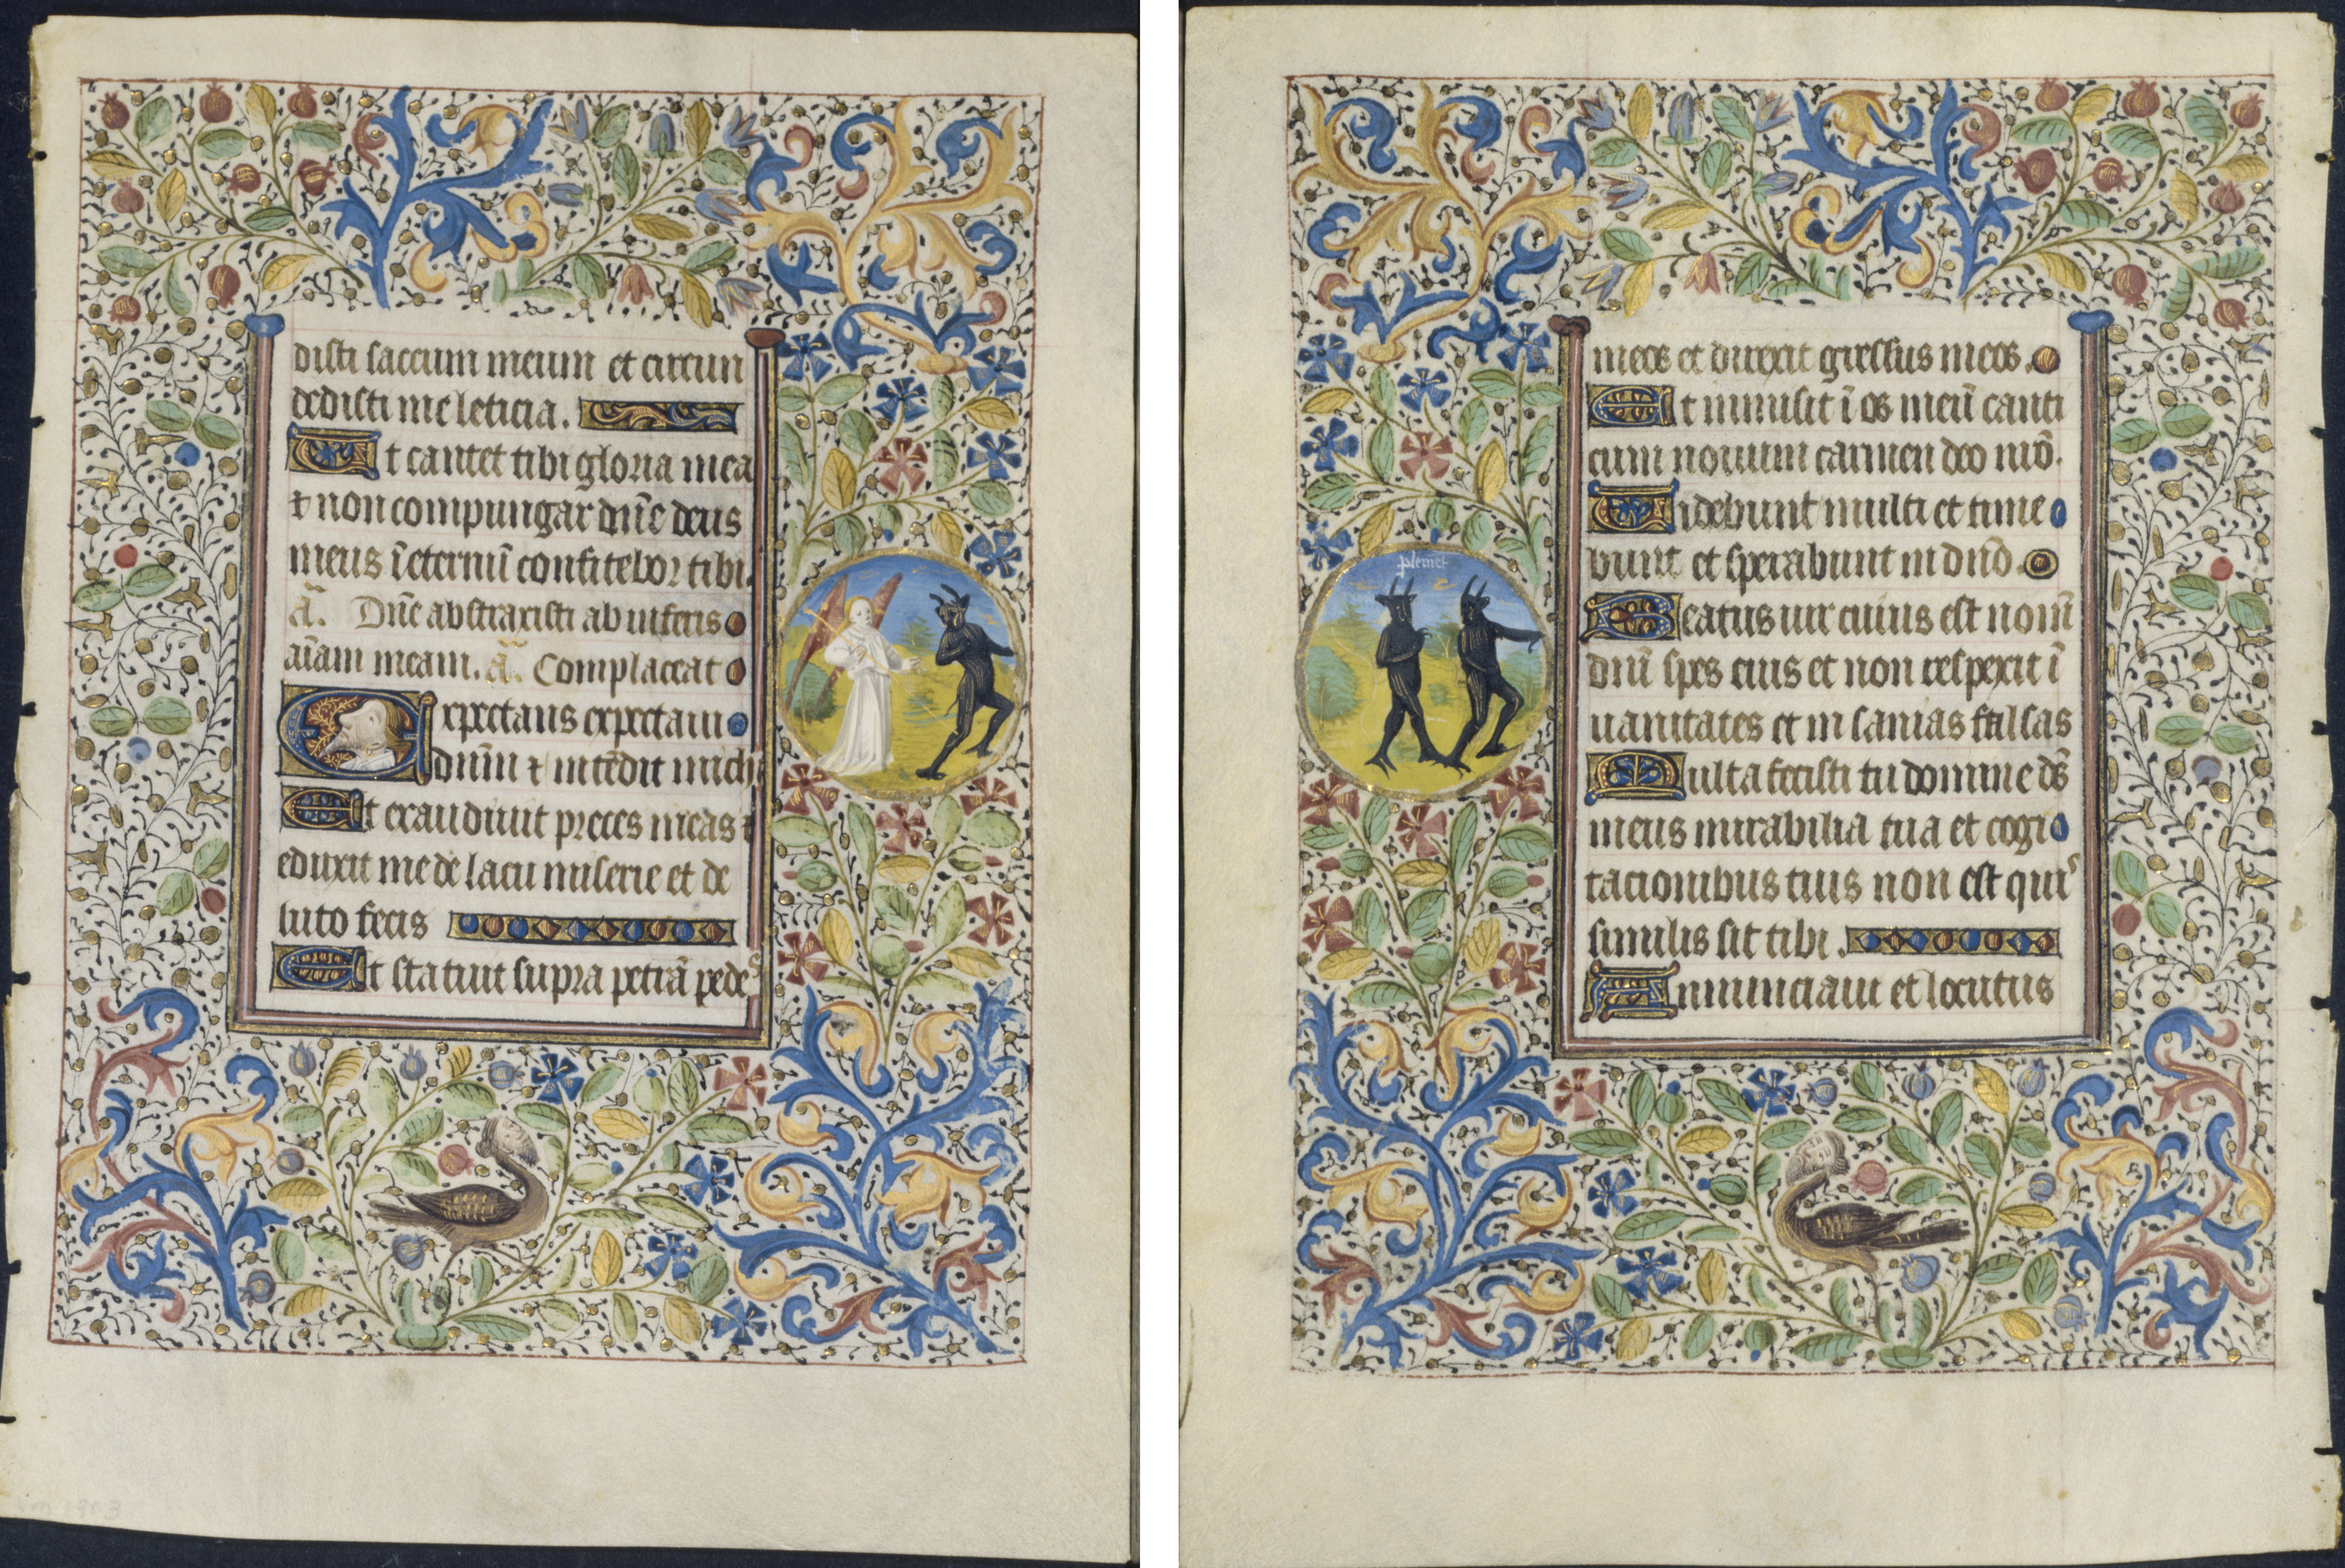 disti saccum meum et circun
dedisti me leticia.
Ut cantet tibi gloria mea
⁊ non compungar dn̄e deus
meus ī eternū confitebor tibi.
a͂. Dn̄e abstraxisti ab inferis
aīam meam. a͂. Complaceat
Expectans expectaui
dnm̄ ⁊ intēdit michi
Et exaudiuit preces meas ⁊
eduxit me de lacu miserie et de
luto fecis
Et statuit supra petrā pedes
meos et direxit gressus meos.
Et inmisit ī os meū canti
cum nouum carmen deo nr̄o.
Uidebunt multi et time
bunt et sperabunt in dnō.
Beatus uir cuius est nom̄
dnī spes eius et non respexit ī
uanitates et in sanias falsas
Multa fecisti tu domine ds̄
meus mirabilia tua et cogi
tacionibus tuis non est qui
similis sit tibi.
Annunciaui et locutus